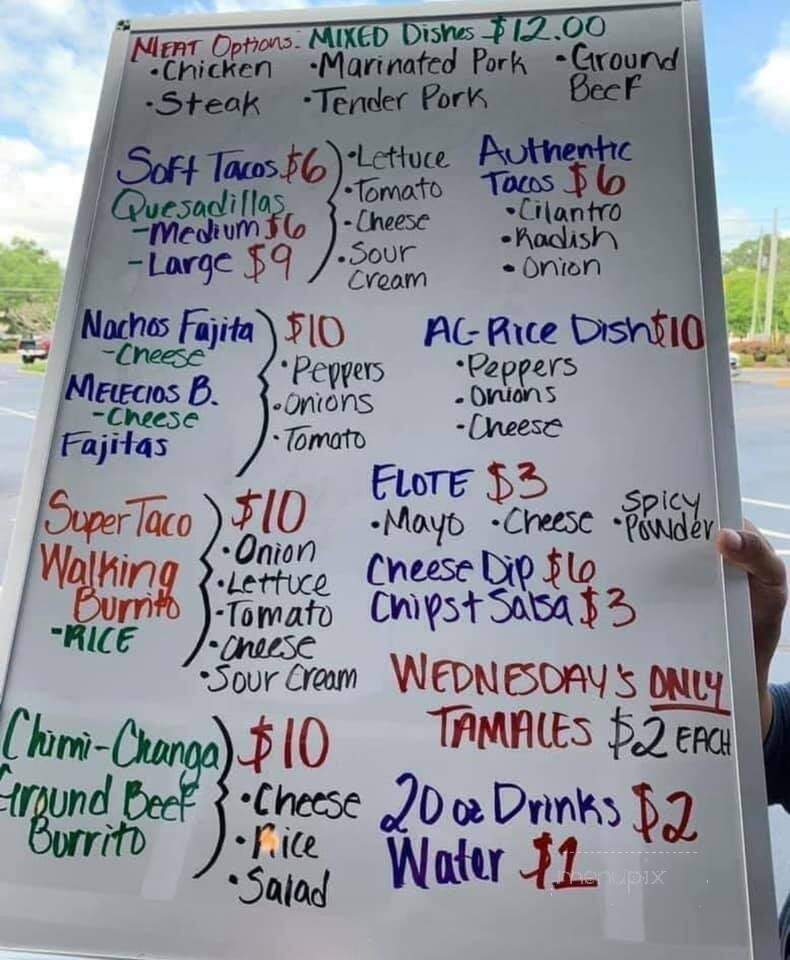 MEAT Options: MIXED Dishes $12.00
•Chicken •Marinated Pork •Ground Beef
•Steak •Tender Pork
Soft Tacos $6
Quesadillas
-Medium $6
-Large $9
•Lettuce
•Tomato
•Cheese
•Sour Cream
Authentic
Tacos $6
•Cilantro
•Radish
•Onion
Nachos Fajita
-Cheese
MELECIOS B.
-Cheese
Fajitas
$10
•Peppers
•Onions
•Tomato
AC-Rice Dish $10
•Peppers
•Onions
•Cheese
ELOTE $3
•Mayo •Cheese •Spicy Powder
Cheese Dip $6
Chips + Salsa $3
Super Taco
Walking
Burrito
-RICE
$10
•Onion
•Lettuce
-Tomato
•Cheese
•Sour Cream
WEDNESDAY'S ONLY
TAMALES $2 EACH
Chimi-Changa
Ground Beef
Burrito
$10
•Cheese
•Rice
•Salad
20 oz Drinks $2
Water $1
menupix